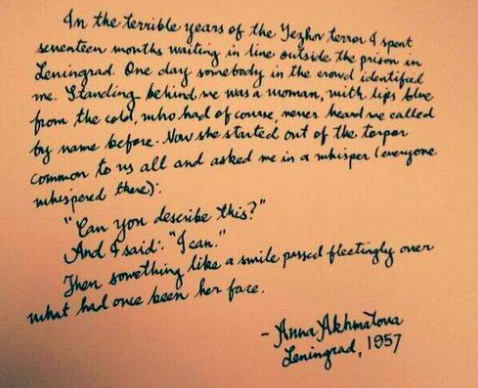 In the terrible years of the Yezhov terror I spent
seventeen months waiting in line outside the prison in
Leningrad. One day somebody in the crowd identified
me. Standing behind me was a woman, with lips blue
from the cold, who had of course, never heard me called
by name before. Now she started out of the torpor
common to us all and asked me in a whisper (everyone
whispered there):
"Can you describe this?"
And I said: "I can."
Then something like a smile passed fleetingly over
what had once been her face.
- Anna Akhmatova
Leningrad, 1957